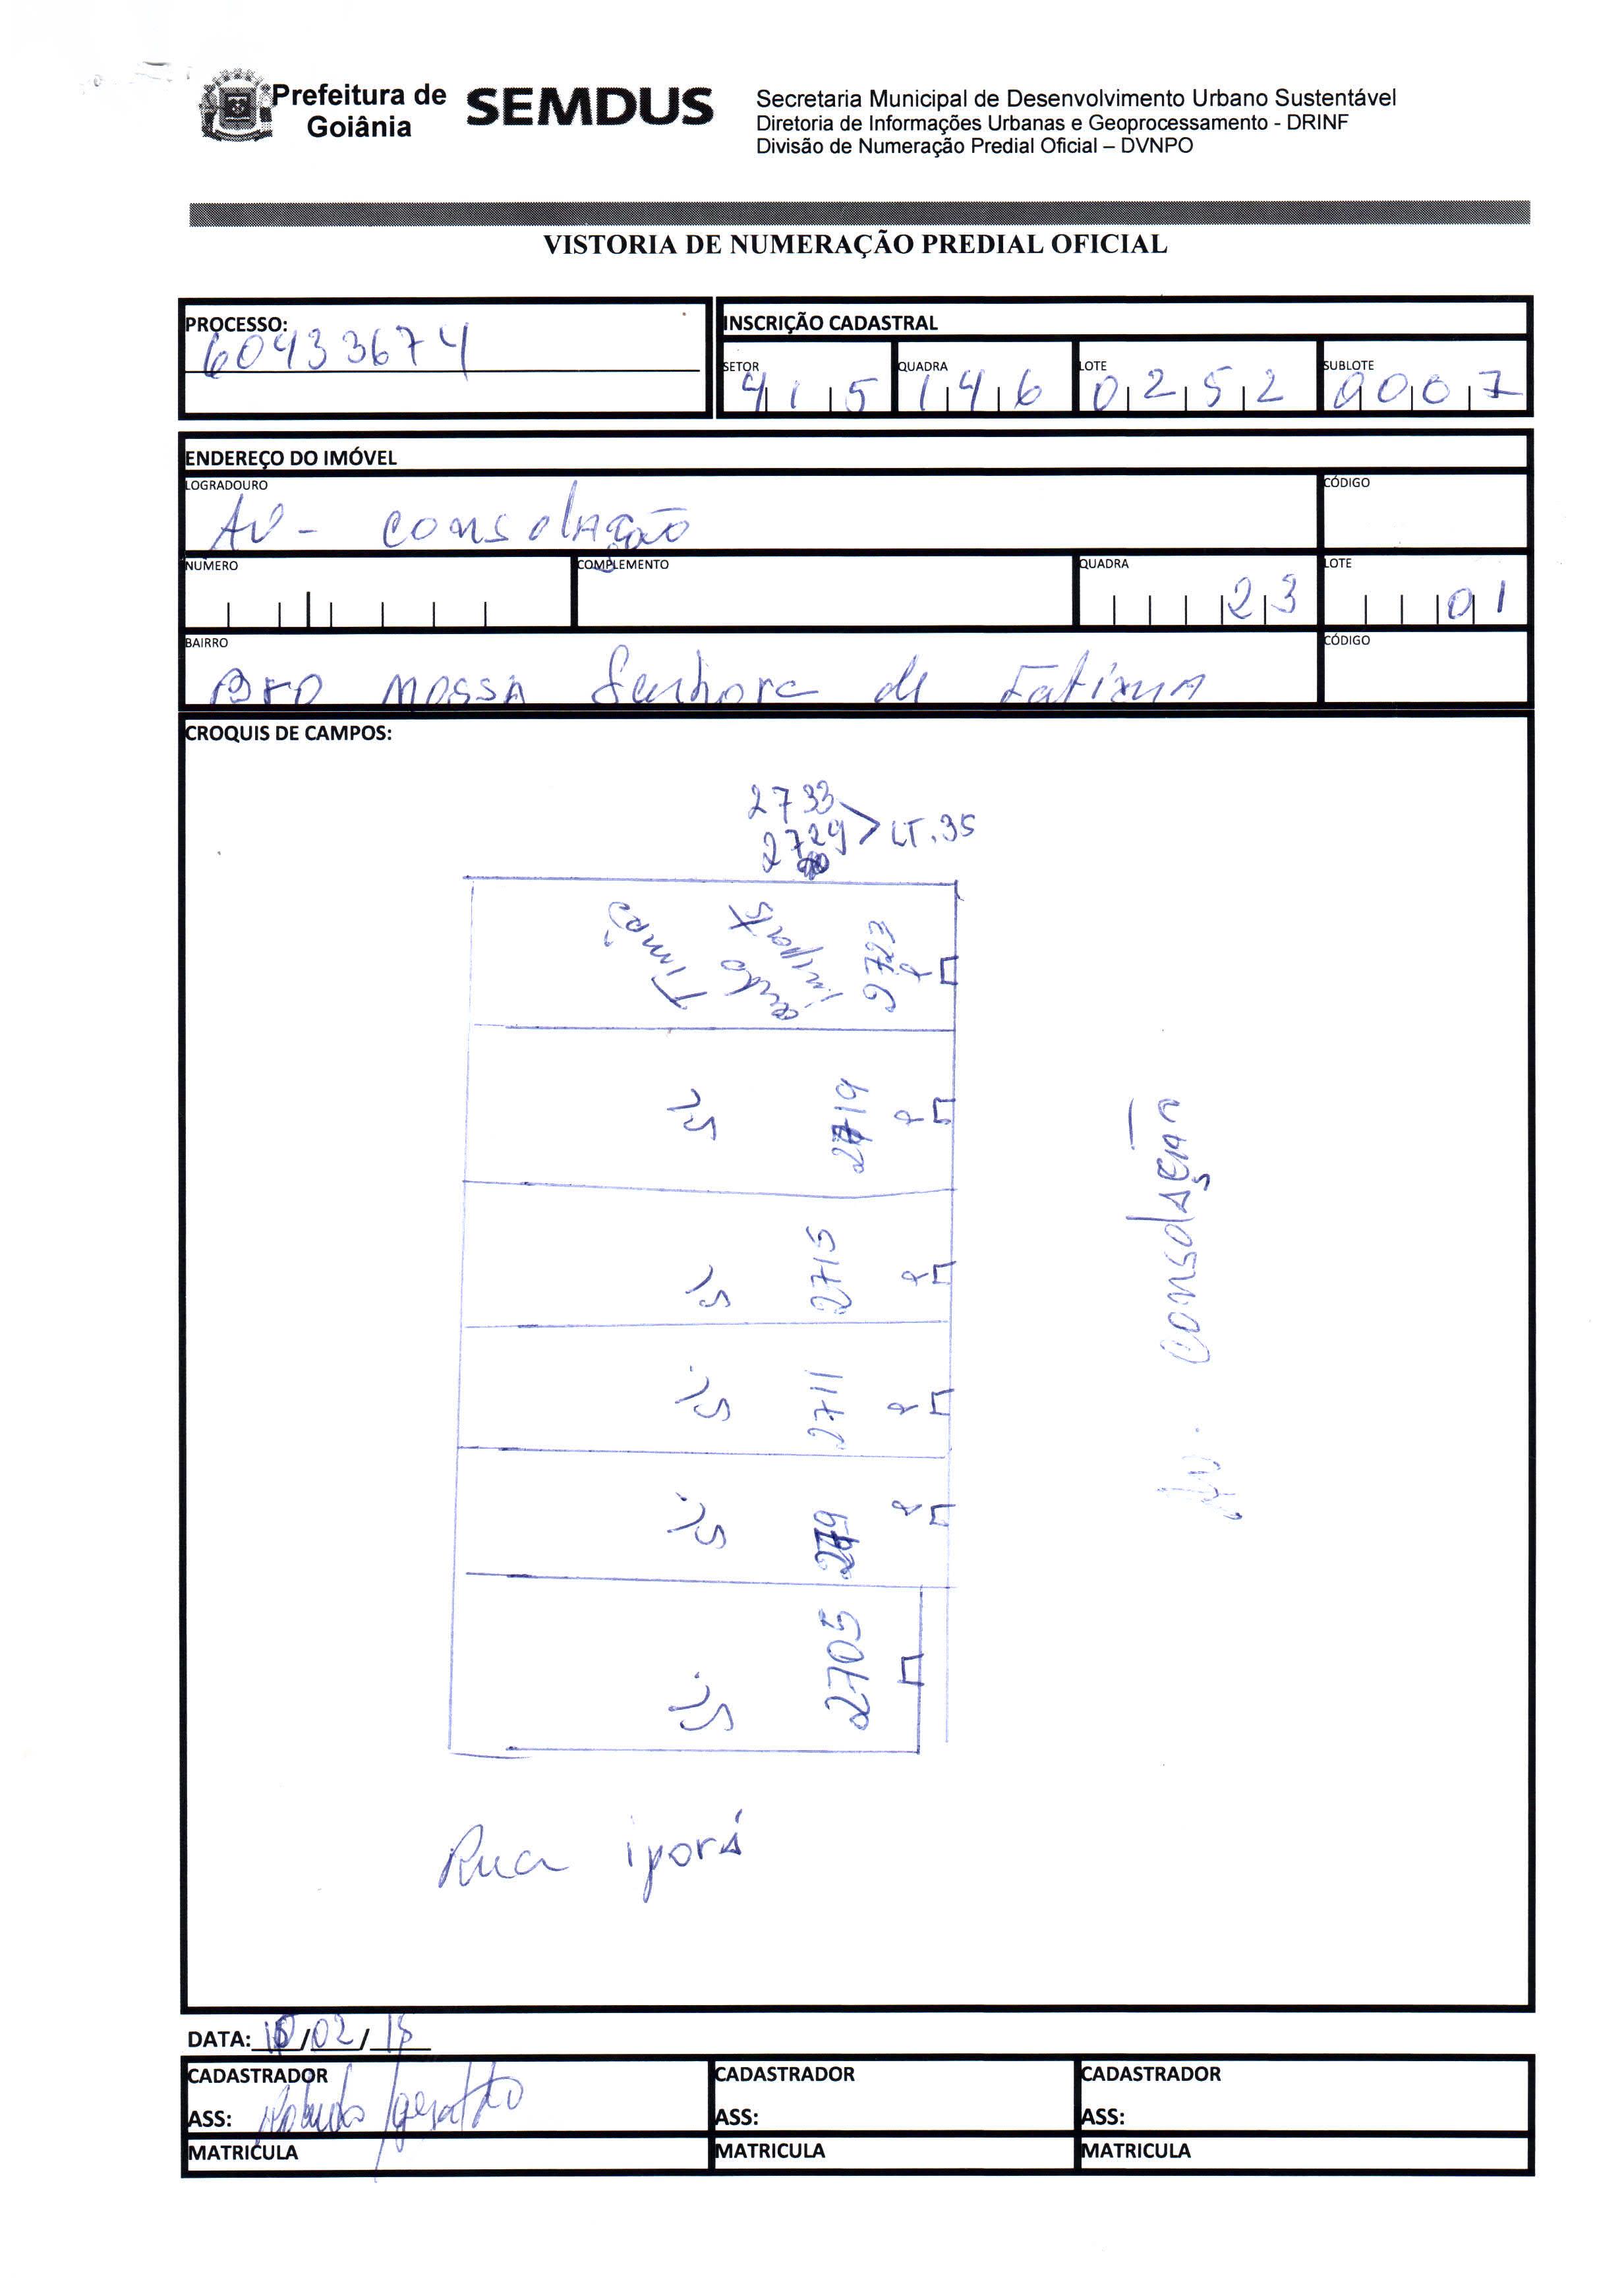 Prefeitura de Goiânia
SEMDUS
Secretaria Municipal de Desenvolvimento Urbano Sustentável
Diretoria de Informações Urbanas e Geoprocessamento - DRINF
Divisão de Numeração Predial Oficial – DVNPO
VISTORIA DE NUMERAÇÃO PREDIAL OFICIAL
PROCESSO:
60433674
INSCRIÇÃO CADASTRAL
SETOR QUADRA LOTE SUBLOTE
415 146 0252 0007
ENDEREÇO DO IMÓVEL
LOGRADOURO CÓDIGO
AV - consolação
NÚMERO COMPLEMENTO QUADRA LOTE
23 01
BAIRRO CÓDIGO
Bro Nossa Senhora de Fatima
CROQUIS DE CAMPOS:
2733
2729 > LT.35
2719
2715
2711
2705
Av. consolação
Rua iporá
DATA: /02/15
CADASTRADOR CADASTRADOR CADASTRADOR
ASS: ASS: ASS:
MATRICULA MATRICULA MATRICULA